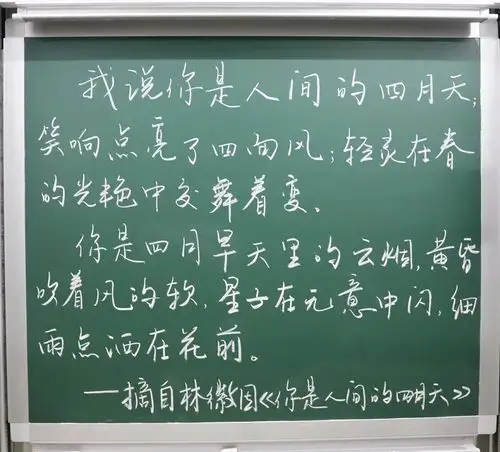 我说你是人间的四月天；
笑响点亮了四面风；轻灵在春
的光艳中交舞着变。
你是四月早天里的云烟，黄昏
吹着风的软，星子在无意中闪，细
雨点洒在花前。
——摘自林徽因《你是人间的四月天》